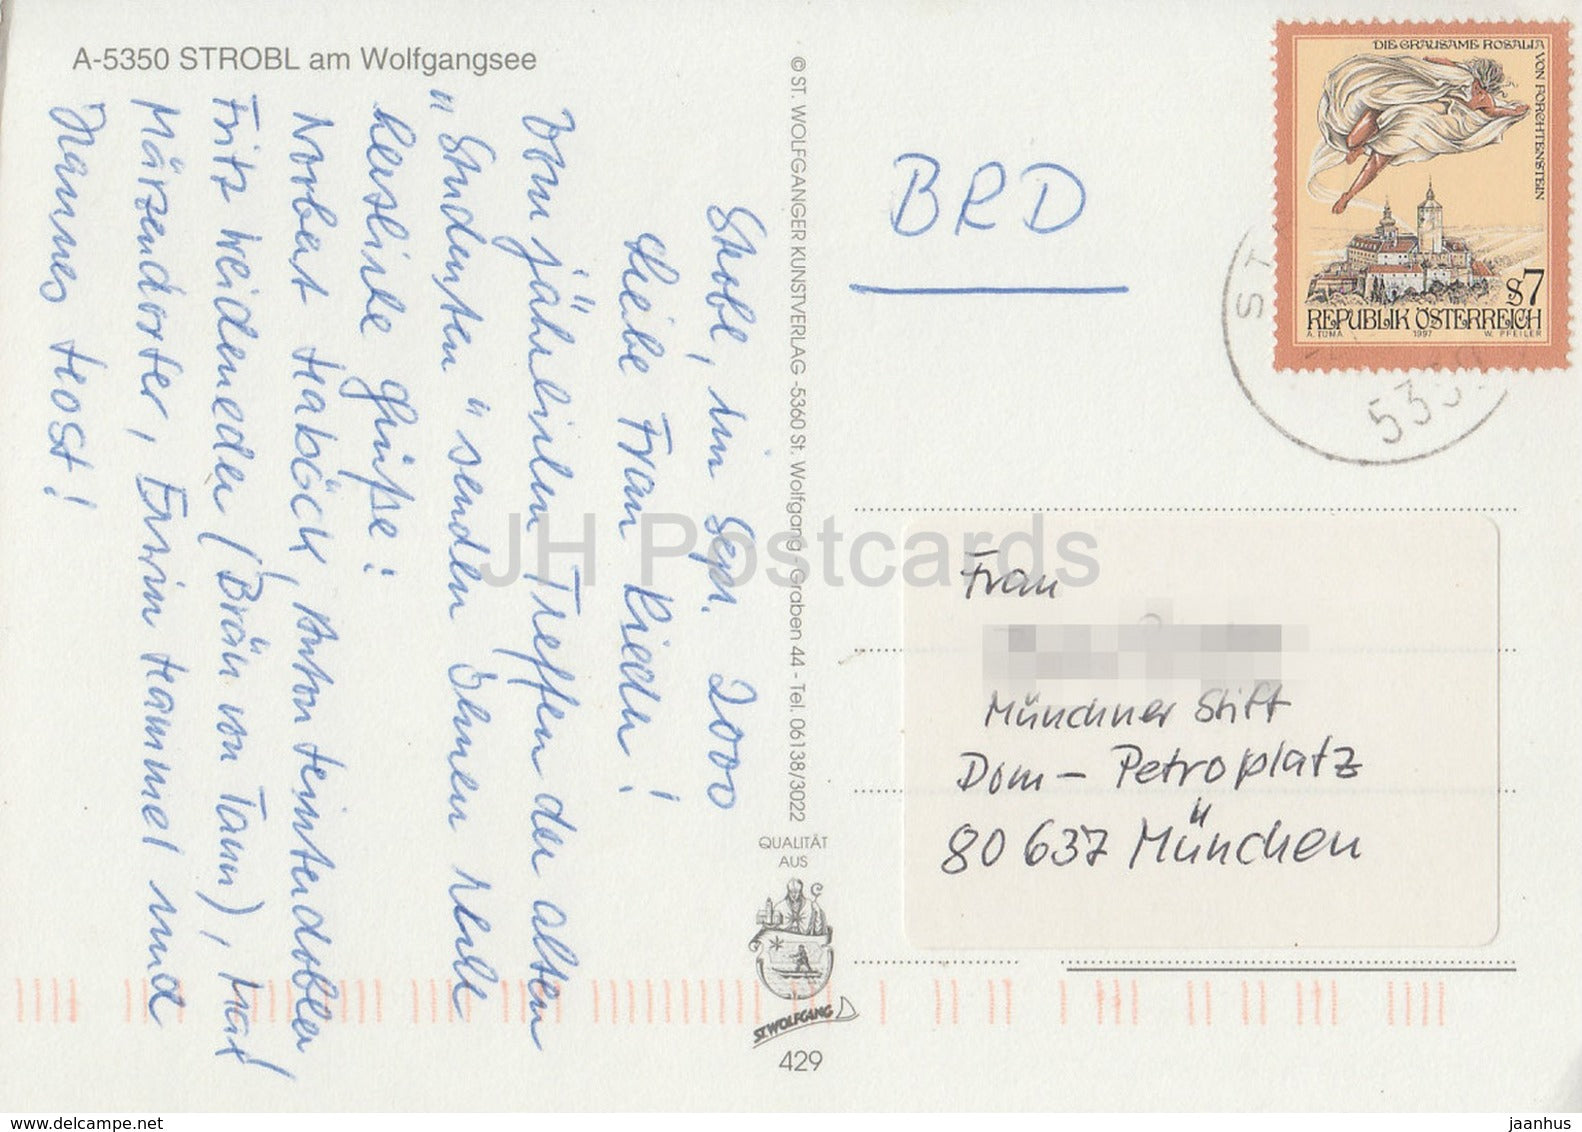 A-5350 STROBL am Wolfgangsee
Strobl, im Sept. 2000
Liebe Frau Rieder!
Vom jährlichen Treffen der alten
"Studenten" senden Ihnen recht
herzliche Grüße:
Norbert Haböck, Anton Hemetsdobler
Fritz Weideneder (Bräu von Tann), Karl
Märzendorfer, Erwin Hammel und
Hannes Host!
© ST. WOLFGANGER KUNSTVERLAG -5360 St. Wolfgang - Graben 44 - Tel. 06138/3022
QUALITÄT
AUS
ST. WOLFGANG
429
BRD
DIE GRAUSAME ROSALIA
VON FORCHTENSTEIN
S7
REPUBLIK ÖSTERREICH
A. TUMA 1997 W. PFEILER
Frau
Münchner Stift
Dom-Petroplatz
80637 München
JH Postcards
www.delcampe.net
jaanhus